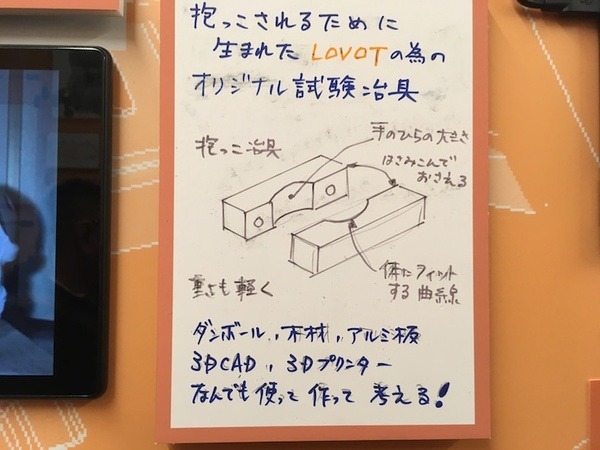 抱っこされるために
生まれた LOVOTの為の
オリジナル試験冶具
抱っこ冶具
手のひらの大きさ
はさみこんで
おさえる
体にフィット
する曲線
重さも軽く
ダンボール、木材、アルミ板
3DCAD、3Dプリンター
なんでも使って作って考える!